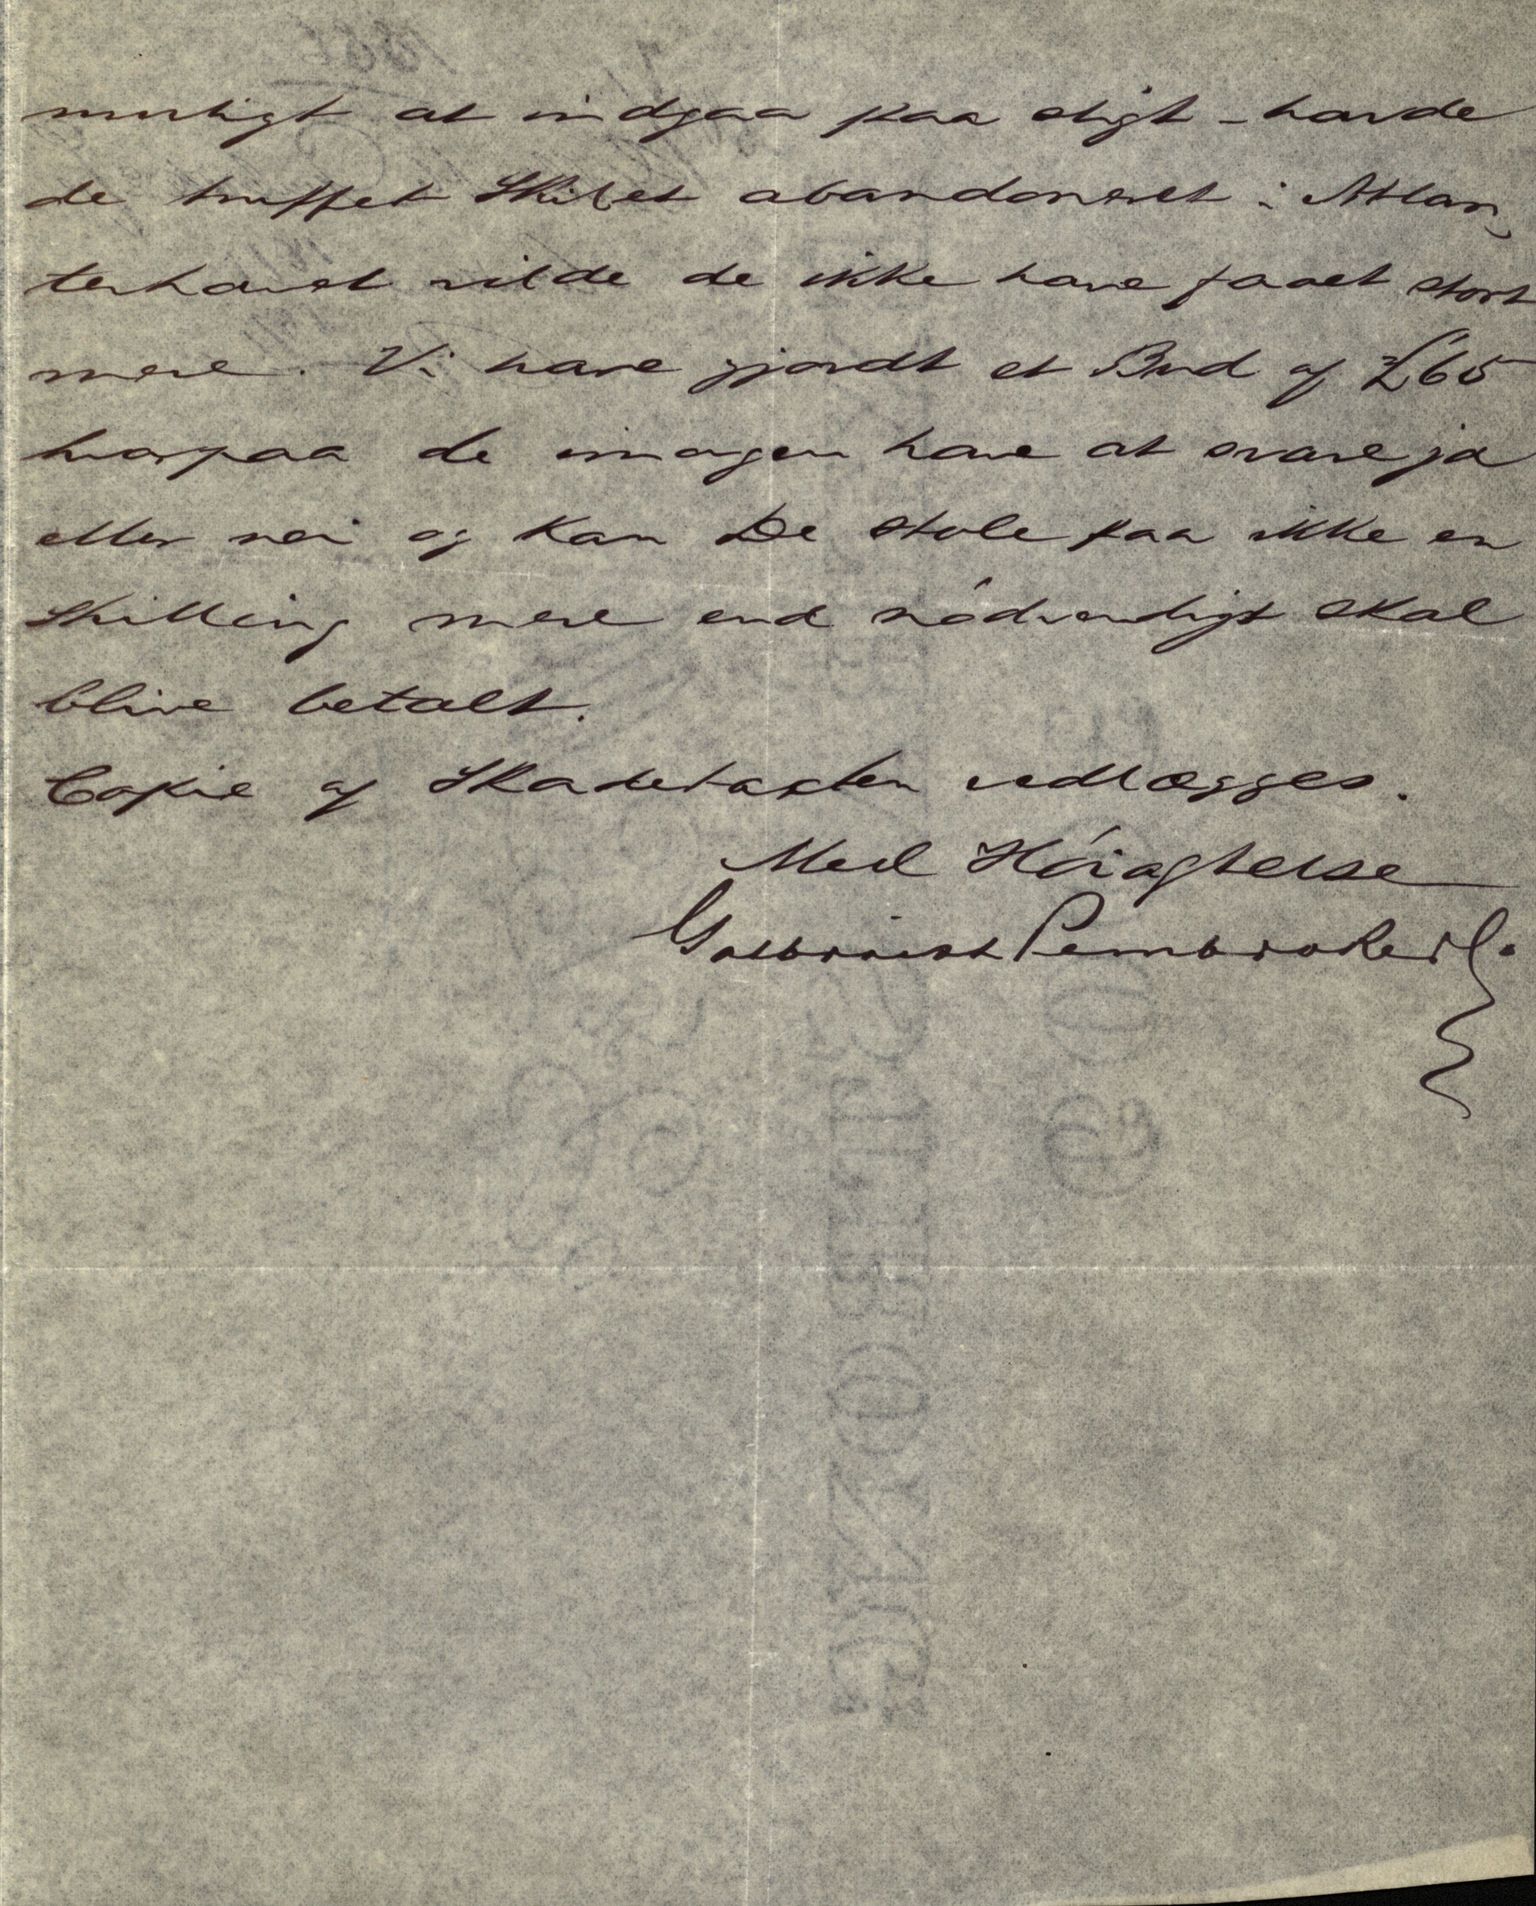 muligt at indgaa paa sligt - havde
de truffet Skibet abandoneret i Atlan,
terhavet vilde de ikke have faaet stort
mere. Vi have gjordt et Bud af £65
hvorpaa de imorgen have at svare ja
eller nei og kan De stole paa ikke en
Shilling mere end nödvendigt skal
blive betalt.
Copie af Skadetaxten vedlægges.
Med Höiagtelse
Galbraith Pembroke & Co.